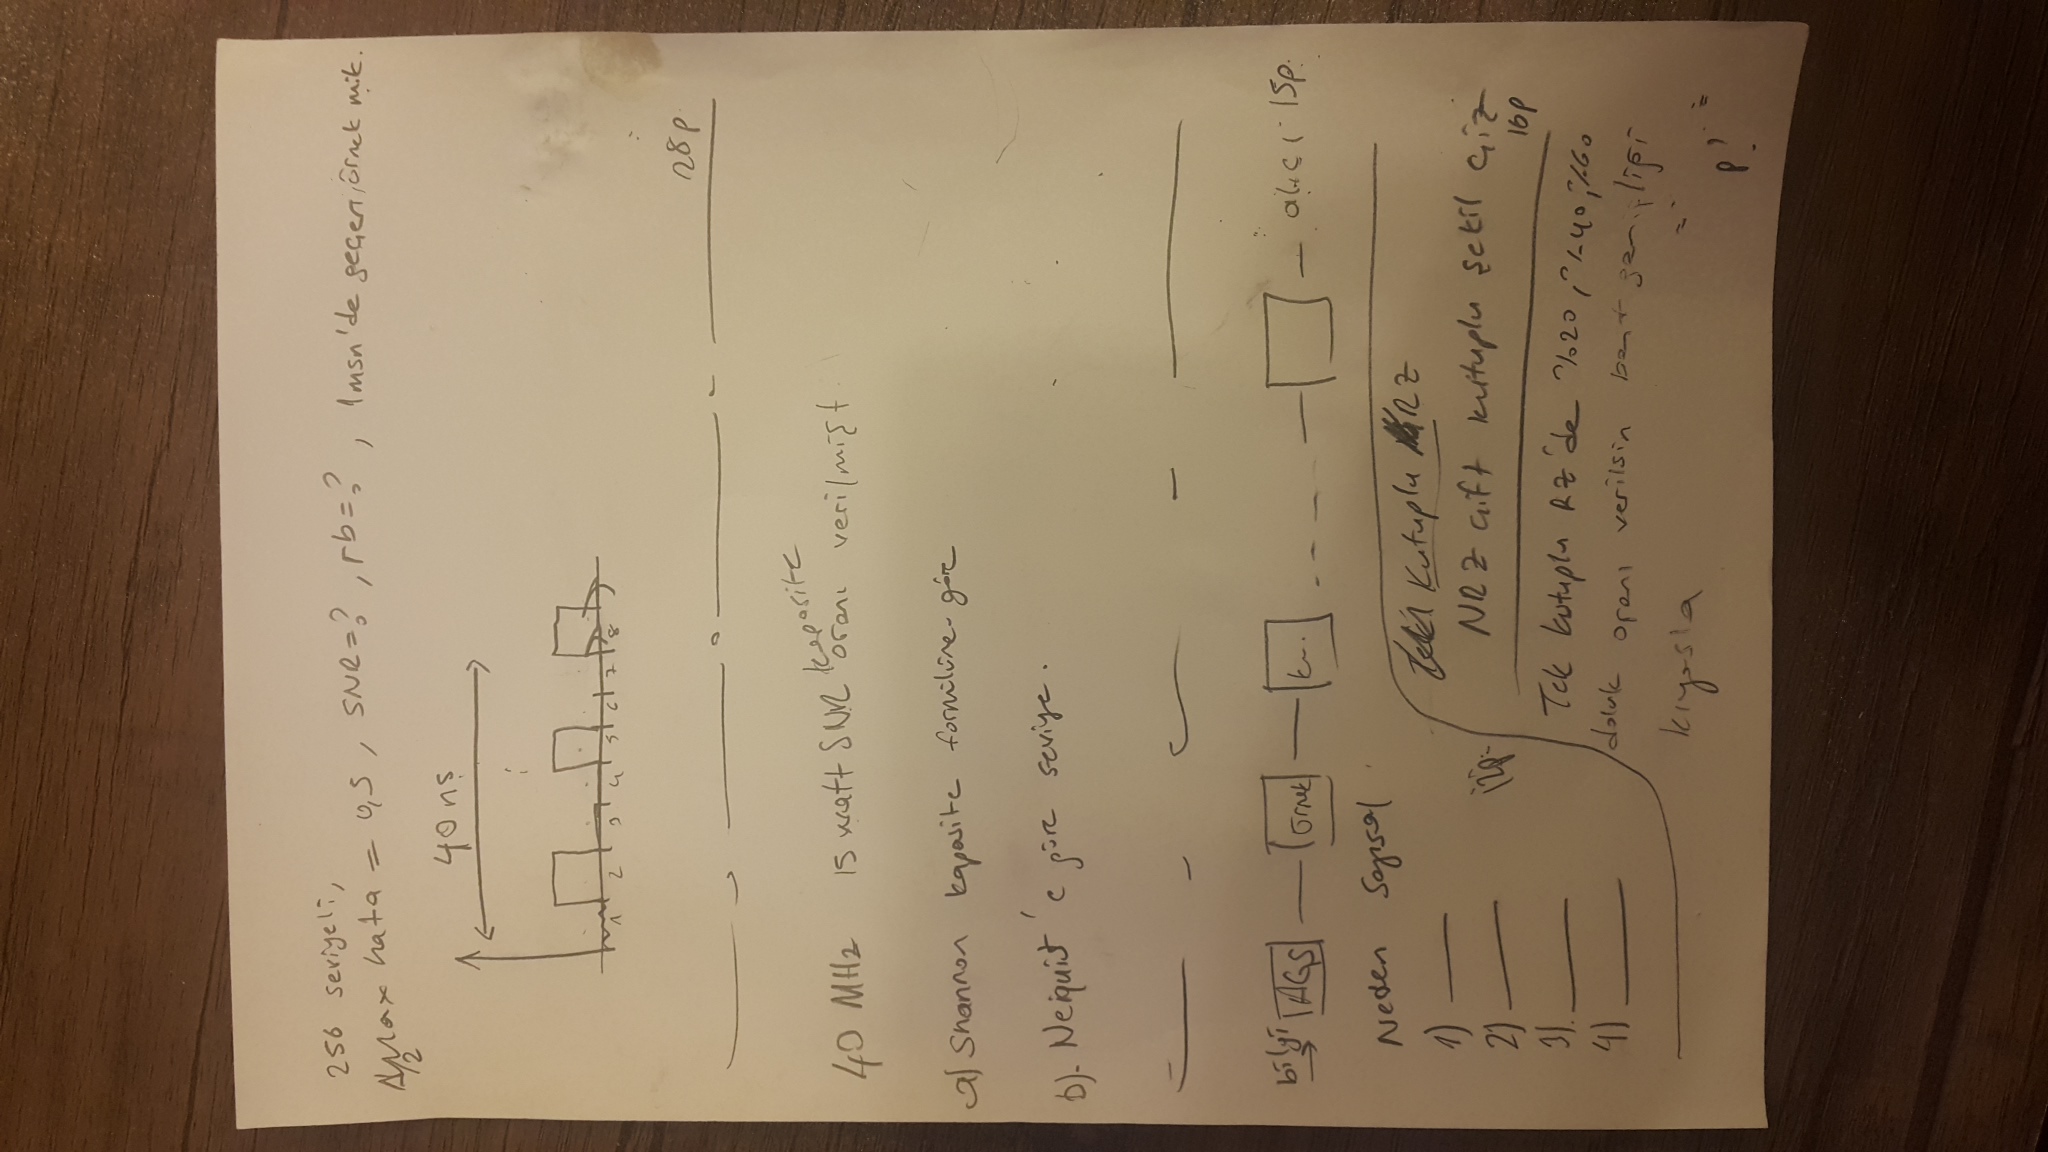 256 seviyeli,
Δ/2 Max hata = 0,5 , SNR=? , rb=? , 1msn'de geçen örnek mik.
40 ns
1 2 3 4 5 6 7 8
28p
40 MHz 15 watt SNR kapasite oranı verilmişt
a) Shannon kapasite formülüne göre
b). Neiquist'e göre seviye.
bilgi AGS Örnek Ku. alıcı 15p.
Neden Sayısal
1)
2)
3).
4)
12p.
Tek Kutuplu RZ
NRZ çift kutuplu şekil çiz
16p
Tek kutuplu RZ'de %20, %40, %60
doluk oranı verilsin bant genişliği
kıyasla
p?